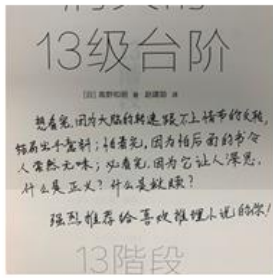 13级台阶
[日] 高野和明 著 赵建勋 译
想看完,因为大脑的转速跟不上情节的反转,
结局出乎意料;怕看完,因为怕后面的书令
人索然无味;必看完,因为它让人深思,
什么是正义?什么是救赎?
强烈推荐给喜欢推理小说的你!
13階段